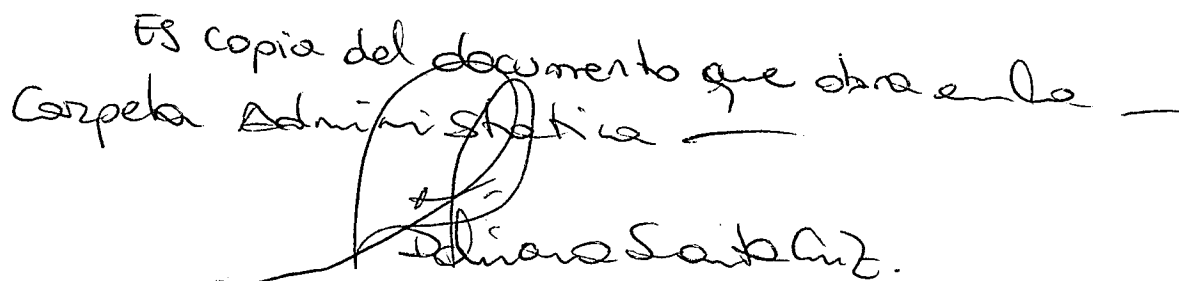 Es copia del documento que obra en la —
Carpeta Administrativa —
Adriana Santa Cruz.